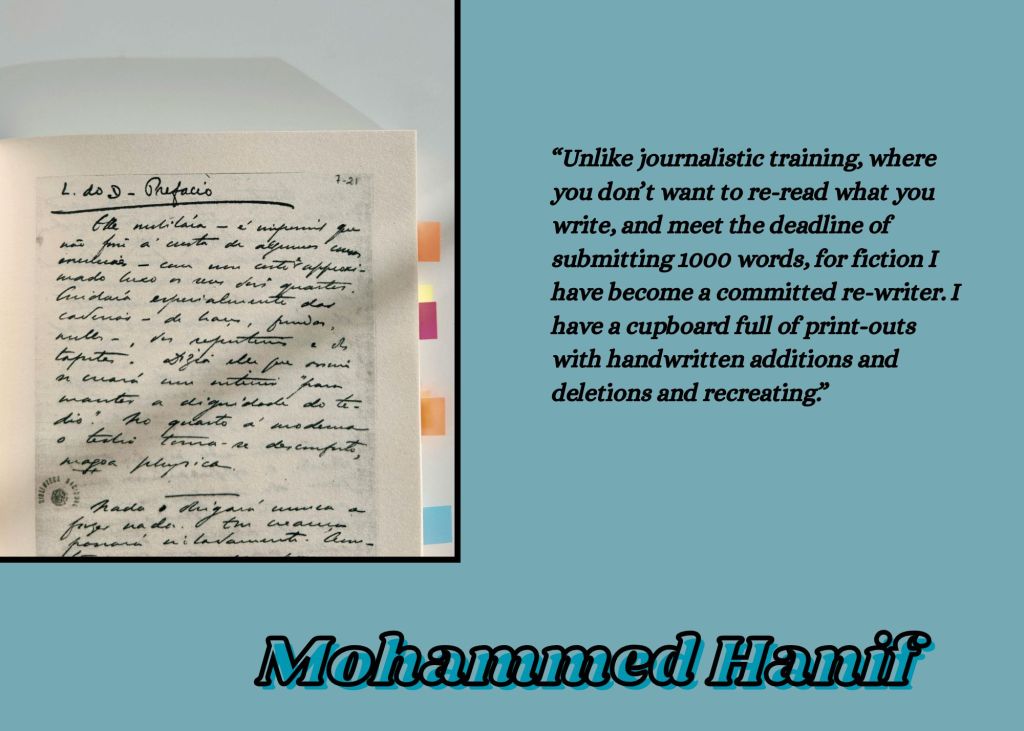 L. do D – Prefacio
7-21
Elle – é que
não á custa de algumas
– com um certo approxi-
mado luxo os seus dois quartos.
Cuidára especialmente das
cadeiras – de braços, fundas,
molles –, dos reposteiros e dos
tapetes. Dizia elle que assim
se creára um interior "para
manter a dignidade do te-
dio". No quarto á moderna
o tedio torna-se desconforto,
magoa physica.
BIBLIOTECA NACIONAL
Nada o obrigára nunca a
fazer nada. Em creança
passára isoladamente.
“Unlike journalistic training, where
you don’t want to re-read what you
write, and meet the deadline of
submitting 1000 words, for fiction I
have become a committed re-writer. I
have a cupboard full of print-outs
with handwritten additions and
deletions and recreating.”
Mohammed Hanif